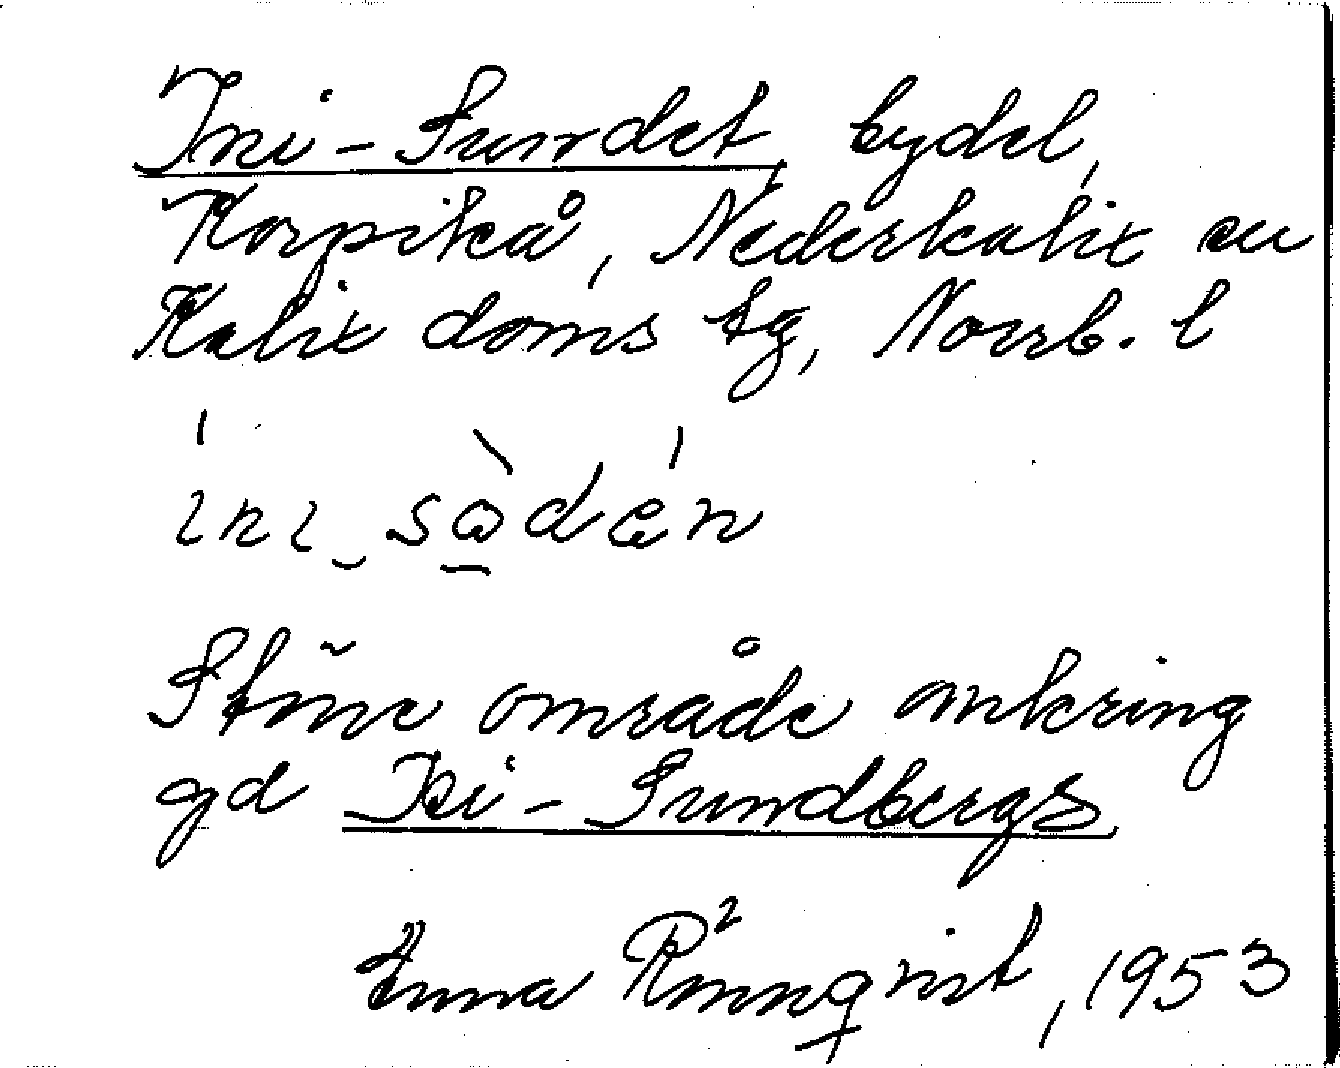 Ini-Sundet, bydel,
Korpikå, Nederkalix sn
Kalix doms tg, Norrb. l
ini såden
Större område omkring
gd Isi-Sundbergs
Anna Rönnqvist, 1953